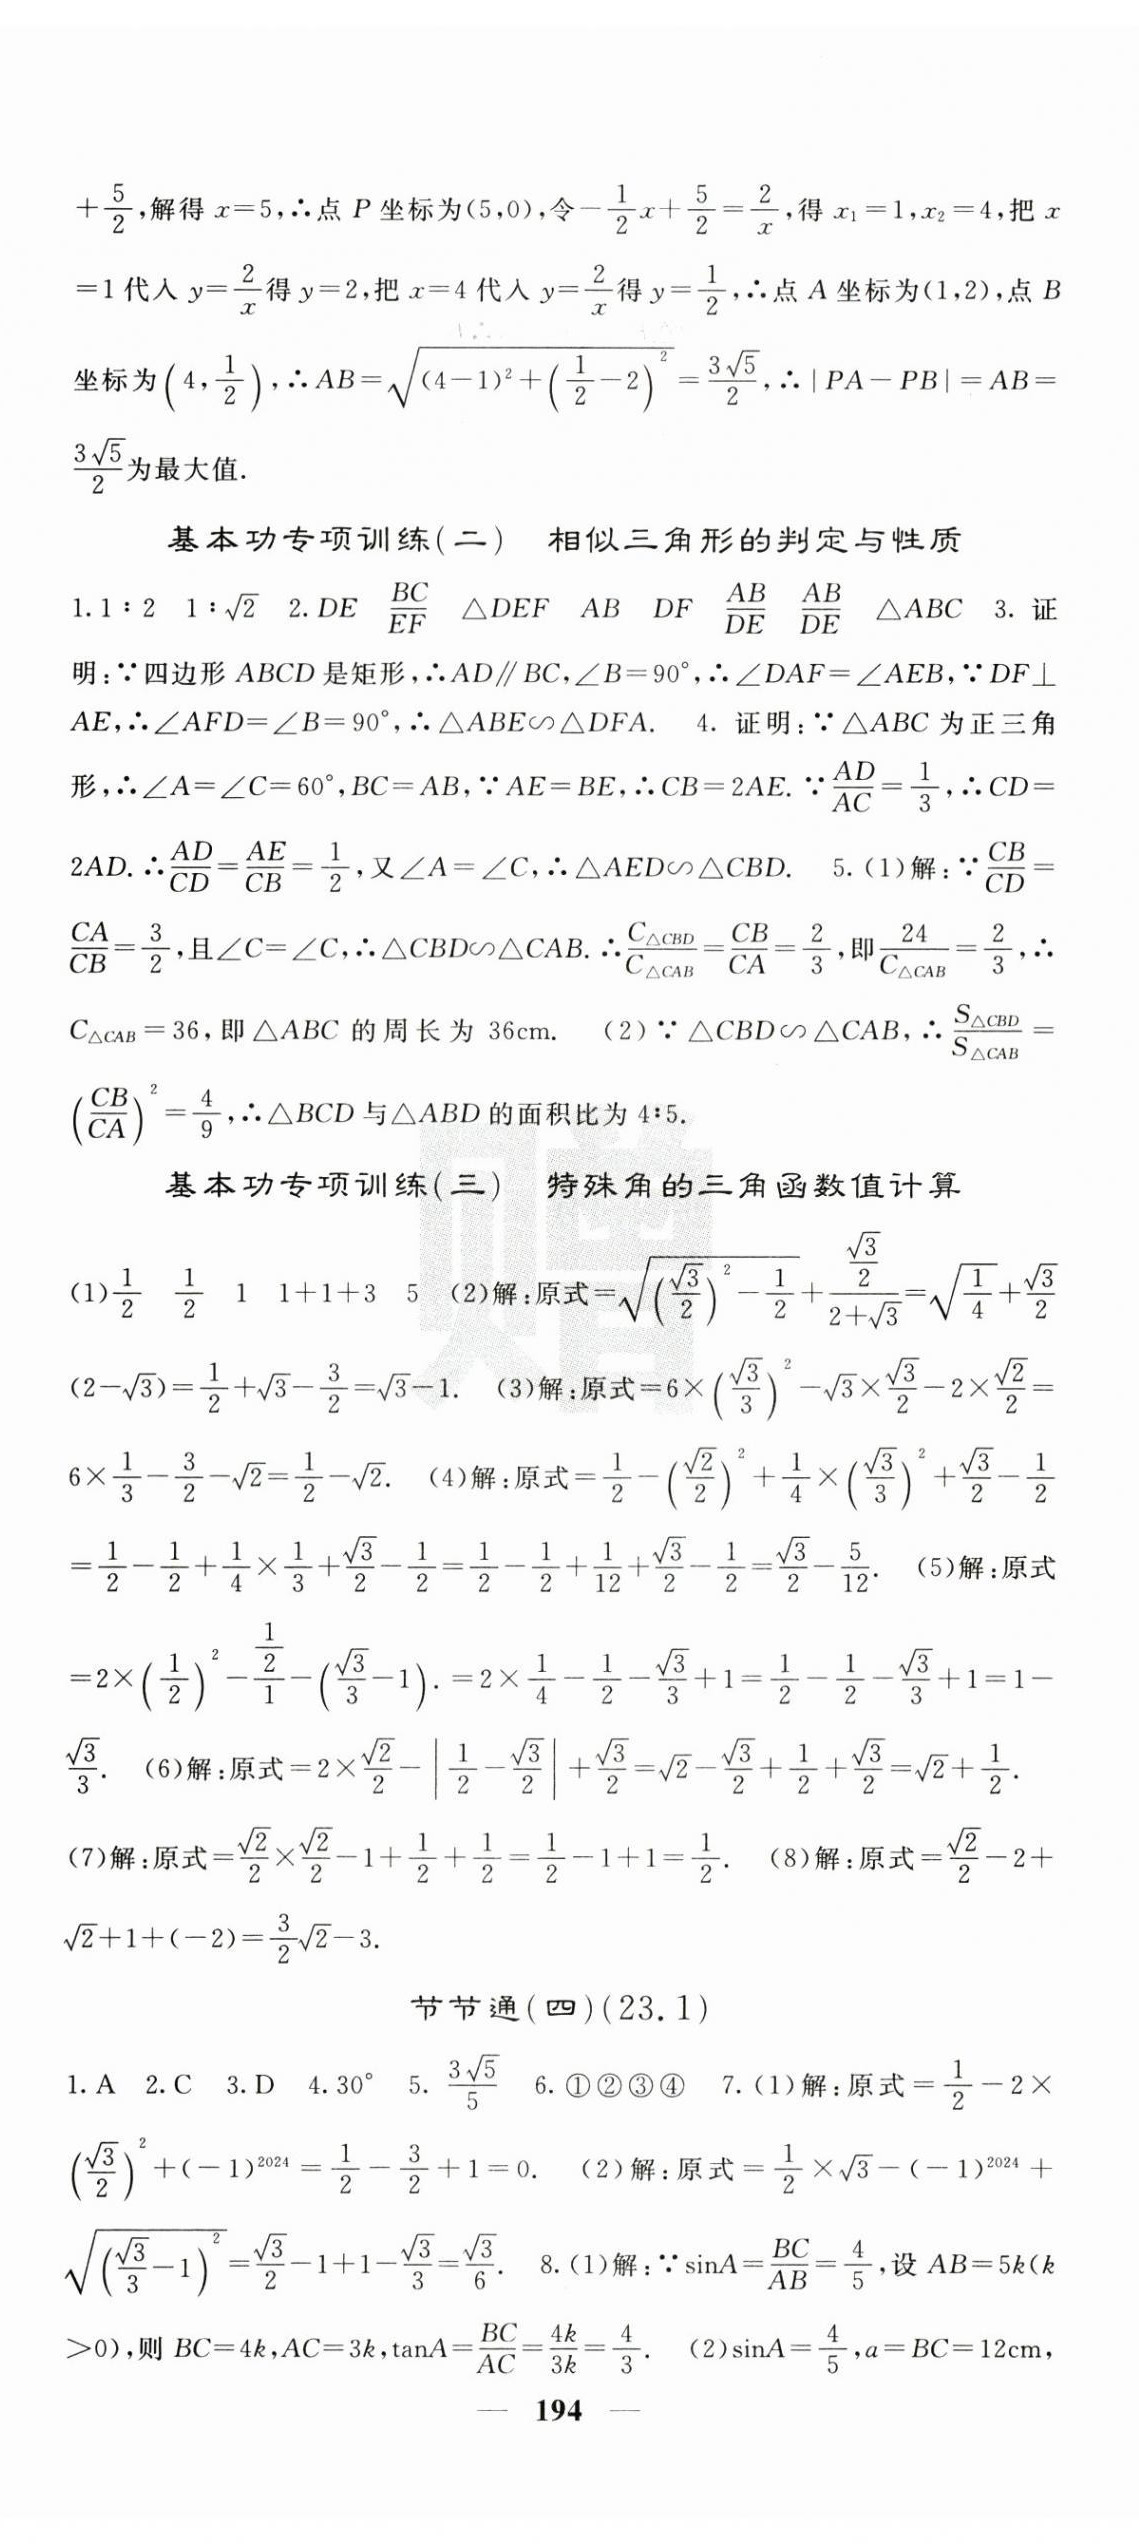 +5/2,解得 x=5,∴点 P 坐标为(5,0),令-1/2x+5/2=2/x,得 x₁=1,x₂=4,把 x
=1 代入 y=2/x得 y=2,把 x=4 代入 y=2/x得 y=1/2,∴点 A 坐标为(1,2),点 B
坐标为(4,1/2),∴AB=√((4-1)²+(1/2-2)²)=3√5/2,∴|PA-PB|=AB=
3√5/2为最大值.
基本功专项训练(二) 相似三角形的判定与性质
1.1∶2 1∶√2 2.DE BC/EF △DEF AB DF AB/DE AB/DE △ABC 3. 证
明:∵四边形 ABCD 是矩形,∴AD∥BC,∠B=90°,∴∠DAF=∠AEB,∵DF⊥
AE,∴∠AFD=∠B=90°,∴△ABE∽△DFA. 4. 证明:∵△ABC 为正三角
形,∴∠A=∠C=60°,BC=AB,∵AE=BE,∴CB=2AE.∵AD/AC=1/3,∴CD=
2AD.∴AD/CD=AE/CB=1/2,又∠A=∠C,∴△AED∽△CBD. 5.(1)解:∵CB/CD=
CA/CB=3/2,且∠C=∠C,∴△CBD∽△CAB.∴C△CBD/C△CAB=CB/CA=2/3,即24/C△CAB=2/3,∴
C△CAB=36,即△ABC 的周长为 36cm. (2)∵△CBD∽△CAB,∴S△CBD/S△CAB=
(CB/CA)²=4/9,∴△BCD 与△ABD 的面积比为 4∶5.
基本功专项训练(三) 特殊角的三角函数值计算
(1)1/2 1/2 1 1+1+3 5 (2)解:原式=√((√3/2)²-1/2)+(√3/2)/(2+√3)=√(1/4)+√3/2
(2-√3)=1/2+√3-3/2=√3-1. (3)解:原式=6×(√3/3)²-√3×√3/2-2×√2/2=
6×1/3-3/2-√2=1/2-√2. (4)解:原式=1/2-(√2/2)²+1/4×(√3/3)²+√3/2-1/2
=1/2-1/2+1/4×1/3+√3/2-1/2=1/2-1/2+1/12+√3/2-1/2=√3/2-5/12. (5)解:原式
=2×(1/2)²-(1/2)/1-(√3/3-1).=2×1/4-1/2-√3/3+1=1/2-1/2-√3/3+1=1-
√3/3. (6)解:原式=2×√2/2-|1/2-√3/2|+√3/2=√2-√3/2+1/2+√3/2=√2+1/2.
(7)解:原式=√2/2×√2/2-1+1/2+1/2=1/2-1+1=1/2. (8)解:原式=√2/2-2+
√2+1+(-2)=3/2√2-3.
节节通(四)(23.1)
1.A 2.C 3.D 4.30° 5. 3√5/5 6.①②③④ 7.(1)解:原式=1/2-2×
(√3/2)²+(-1)²⁰²⁴=1/2-3/2+1=0. (2)解:原式=1/2×√3-(-1)²⁰²⁴+
√((√3/3-1)²)=√3/2-1+1-√3/3=√3/6. 8.(1)解:∵sinA=BC/AB=4/5,设 AB=5k(k
>0),则 BC=4k,AC=3k,tanA=BC/AC=4k/3k=4/3. (2)sinA=4/5,a=BC=12cm,
— 194 —